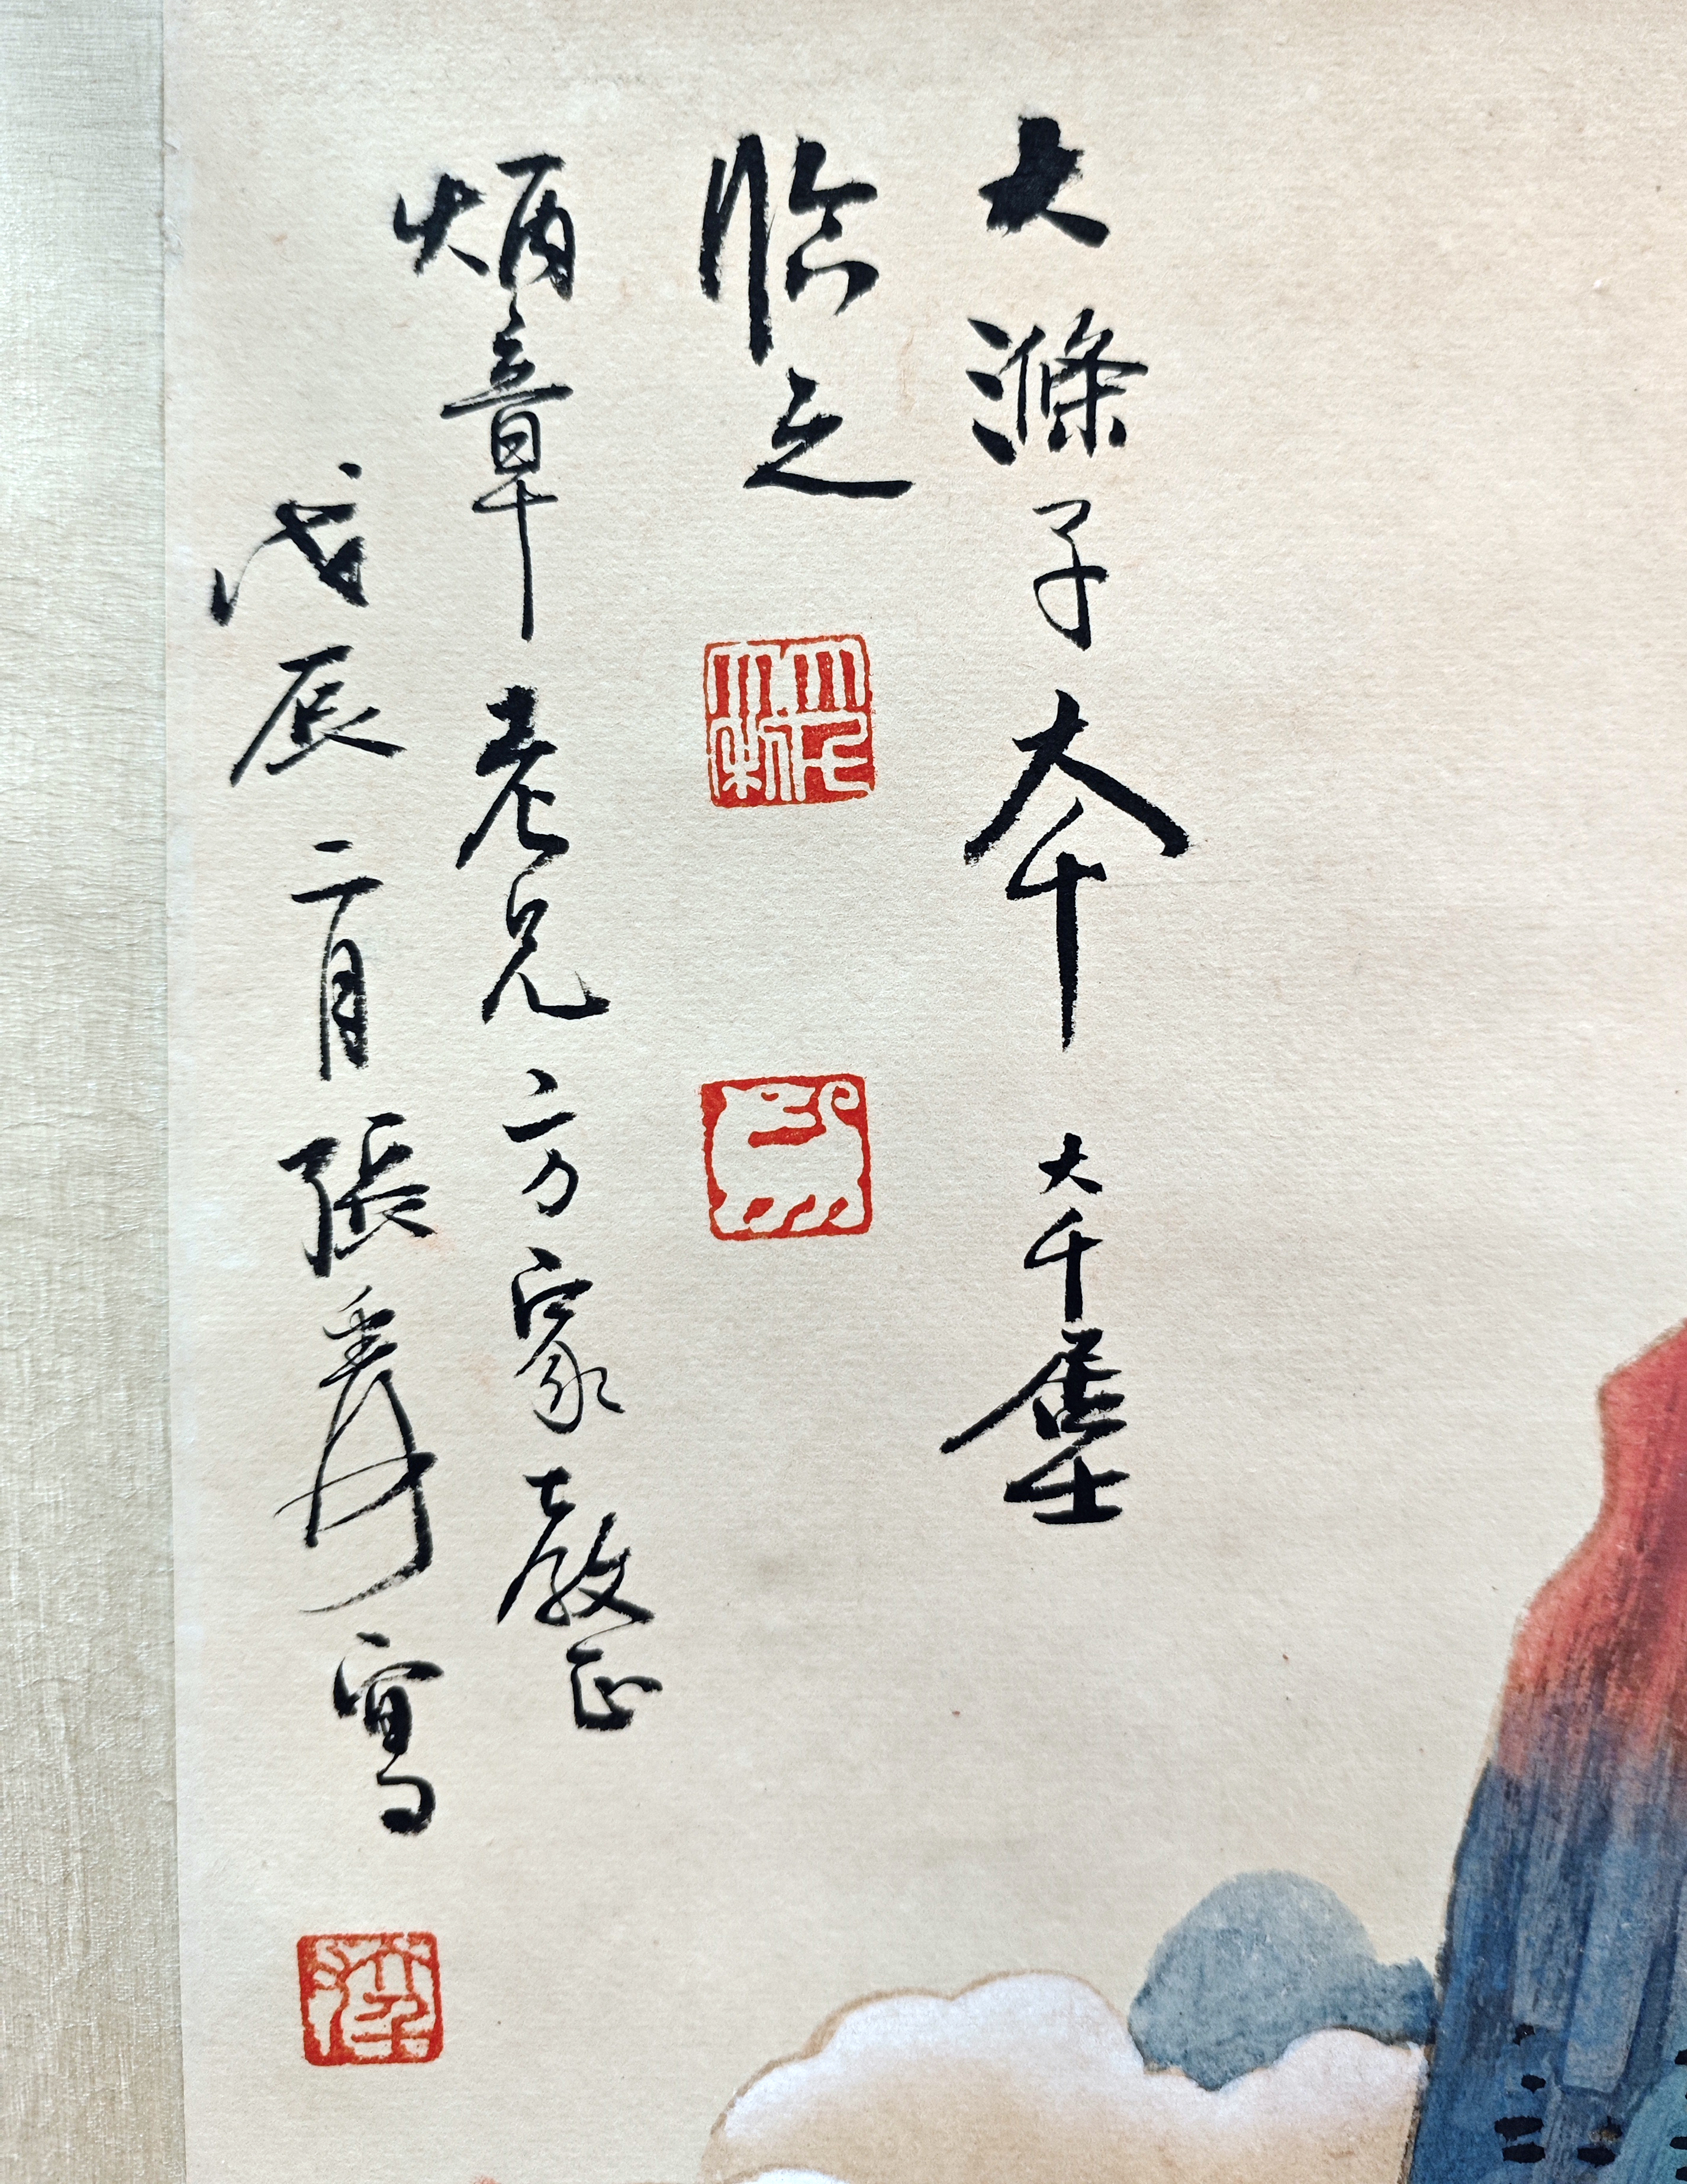 大滌子本 大千居士
臨之
炳章老兄方家教正
戊辰二月張爰寫